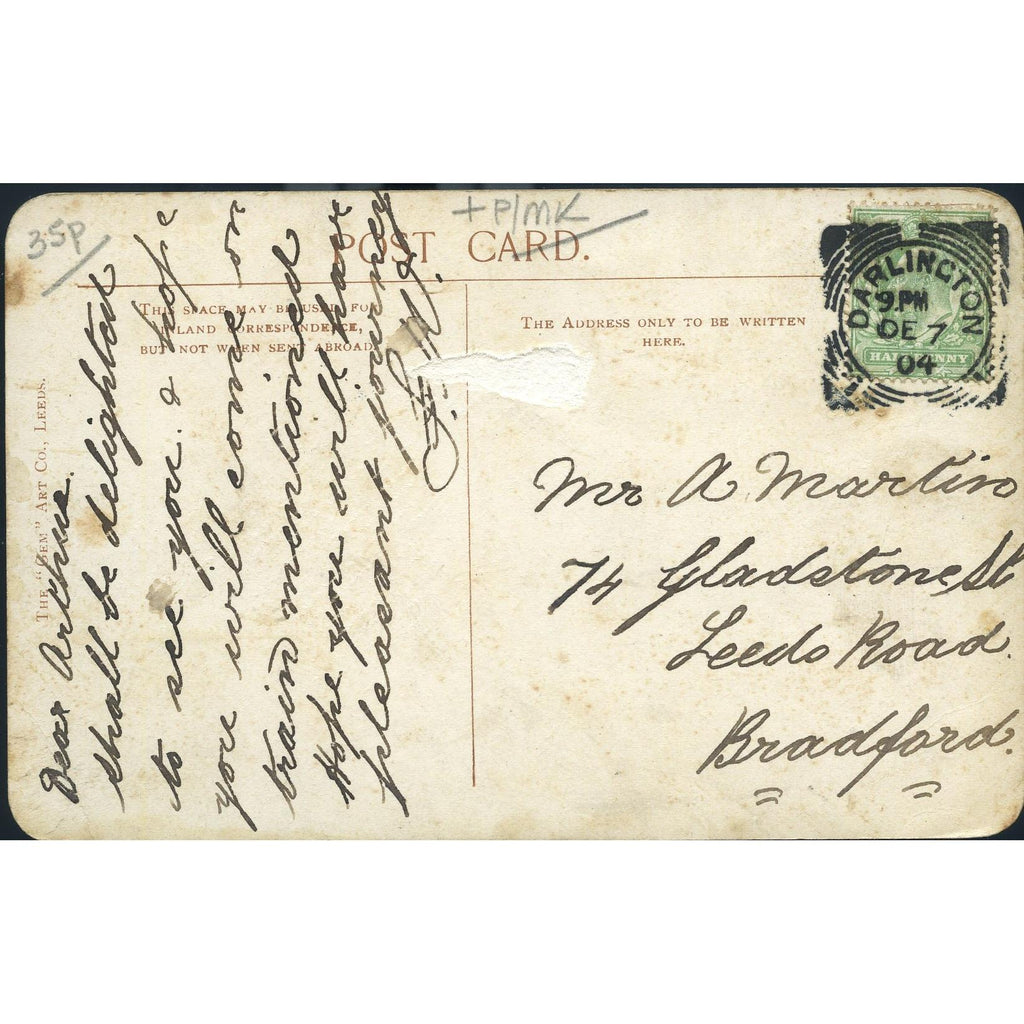 35P
+P/MK
POST CARD.
THIS SPACE MAY BE USED FOR
INLAND CORRESPONDENCE,
BUT NOT WHEN SENT ABROAD
THE ADDRESS ONLY TO BE WRITTEN
HERE.
DARLINGTON
9.PM
DE 7
04
HALFPENNY
THE "GEM" ART CO., LEEDS.
Dear Arthur.
Shall be delighted
to see you. & hope
you will come on
train mentioned
Hope you will have
pleasant journey
Mr A Martin
74 Gladstone St
Leeds Road.
Bradford.